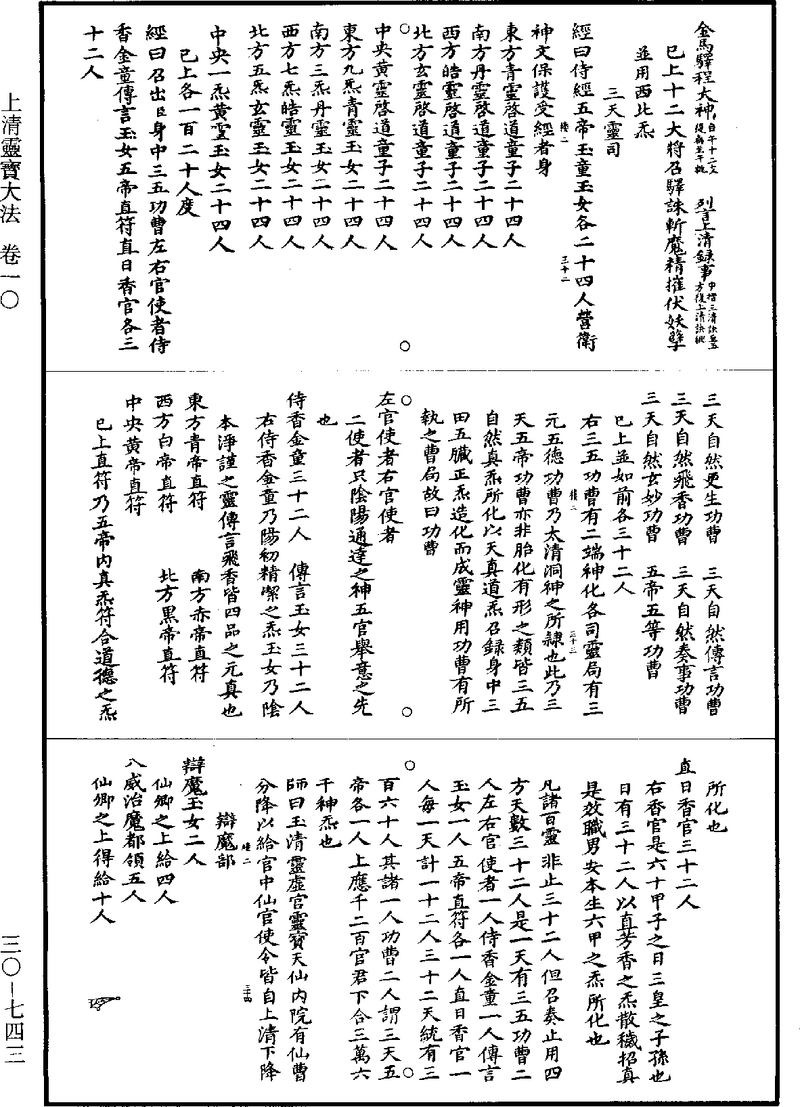 上清靈寶大法　卷一〇
三〇—七四三
金馬驛程大神
列言上清錄事
已上十二大將召驛誅斬魔精摧伏妖孽
並用西北炁
三天靈司
經曰侍經五帝玉童玉女各二十四人營衛
神文保護受經者身
東方青靈啓道童子二十四人
南方丹靈啓道童子二十四人
西方皓靈啓道童子二十四人
北方玄靈啓道童子二十四人
中央黃靈啓道童子二十四人
東方九炁青靈玉女二十四人
南方三炁丹靈玉女二十四人
西方七炁皓靈玉女二十四人
北方五炁玄靈玉女二十四人
中央一炁黃靈玉女二十四人
已上各一百二十人度
經曰召出臣身中三五功曹左右官使者侍
香金童傳言玉女五帝直符直日香官各三
十二人
三天自然更生功曹　三天自然傳言功曹
三天自然飛香功曹　三天自然奏事功曹
三天自然玄妙功曹　五帝五等功曹
已上並如前各三十二人
右三五功曹有二端神化各司靈局有三
元五德功曹乃太清洞神之所隸也此乃三
天五帝功曹亦非胎化有形之類皆三五
自然真炁所化以天真道炁召錄身中三
田五臟正炁造化而成靈神用功曹有所
執之曹局故曰功曹
左官使者右官使者
二使者只陰陽通達之神五官舉意之先
也
侍香金童三十二人　傳言玉女三十二人
右侍香金童乃陽初精潔之炁玉女乃陰
本淨謹之靈傳言飛香皆四品之元真也
東方青帝直符　南方赤帝直符
西方白帝直符　北方黑帝直符
中央黃帝直符
已上直符乃五帝內真炁符合道德之炁
所化也
直日香官三十二人
右香官是六十甲子之日三皇之子孫也
日有三十二人以直芳香之炁散穢招真
是效職男女本生六甲之炁所化也
凡諸百靈非止三十二人但召奏止用四
方天數三十二人是一天有三五功曹二
人左右官使者一人侍香金童一人傳言
玉女一人五帝直符各一人直日香官一
人每一天計一十二人三十二天統有三
百六十人其諸一人功曹二人謂三天五
帝各一人上應千二百官君下合三萬六
千神炁也
師曰玉清靈虛宮靈寶天仙內院有仙曹
分降以給官中仙官使令皆自上清下降
辯魔部
辯魔玉女二人
仙卿之上給四人
八威治魔都領五人
仙卿之上得給十人